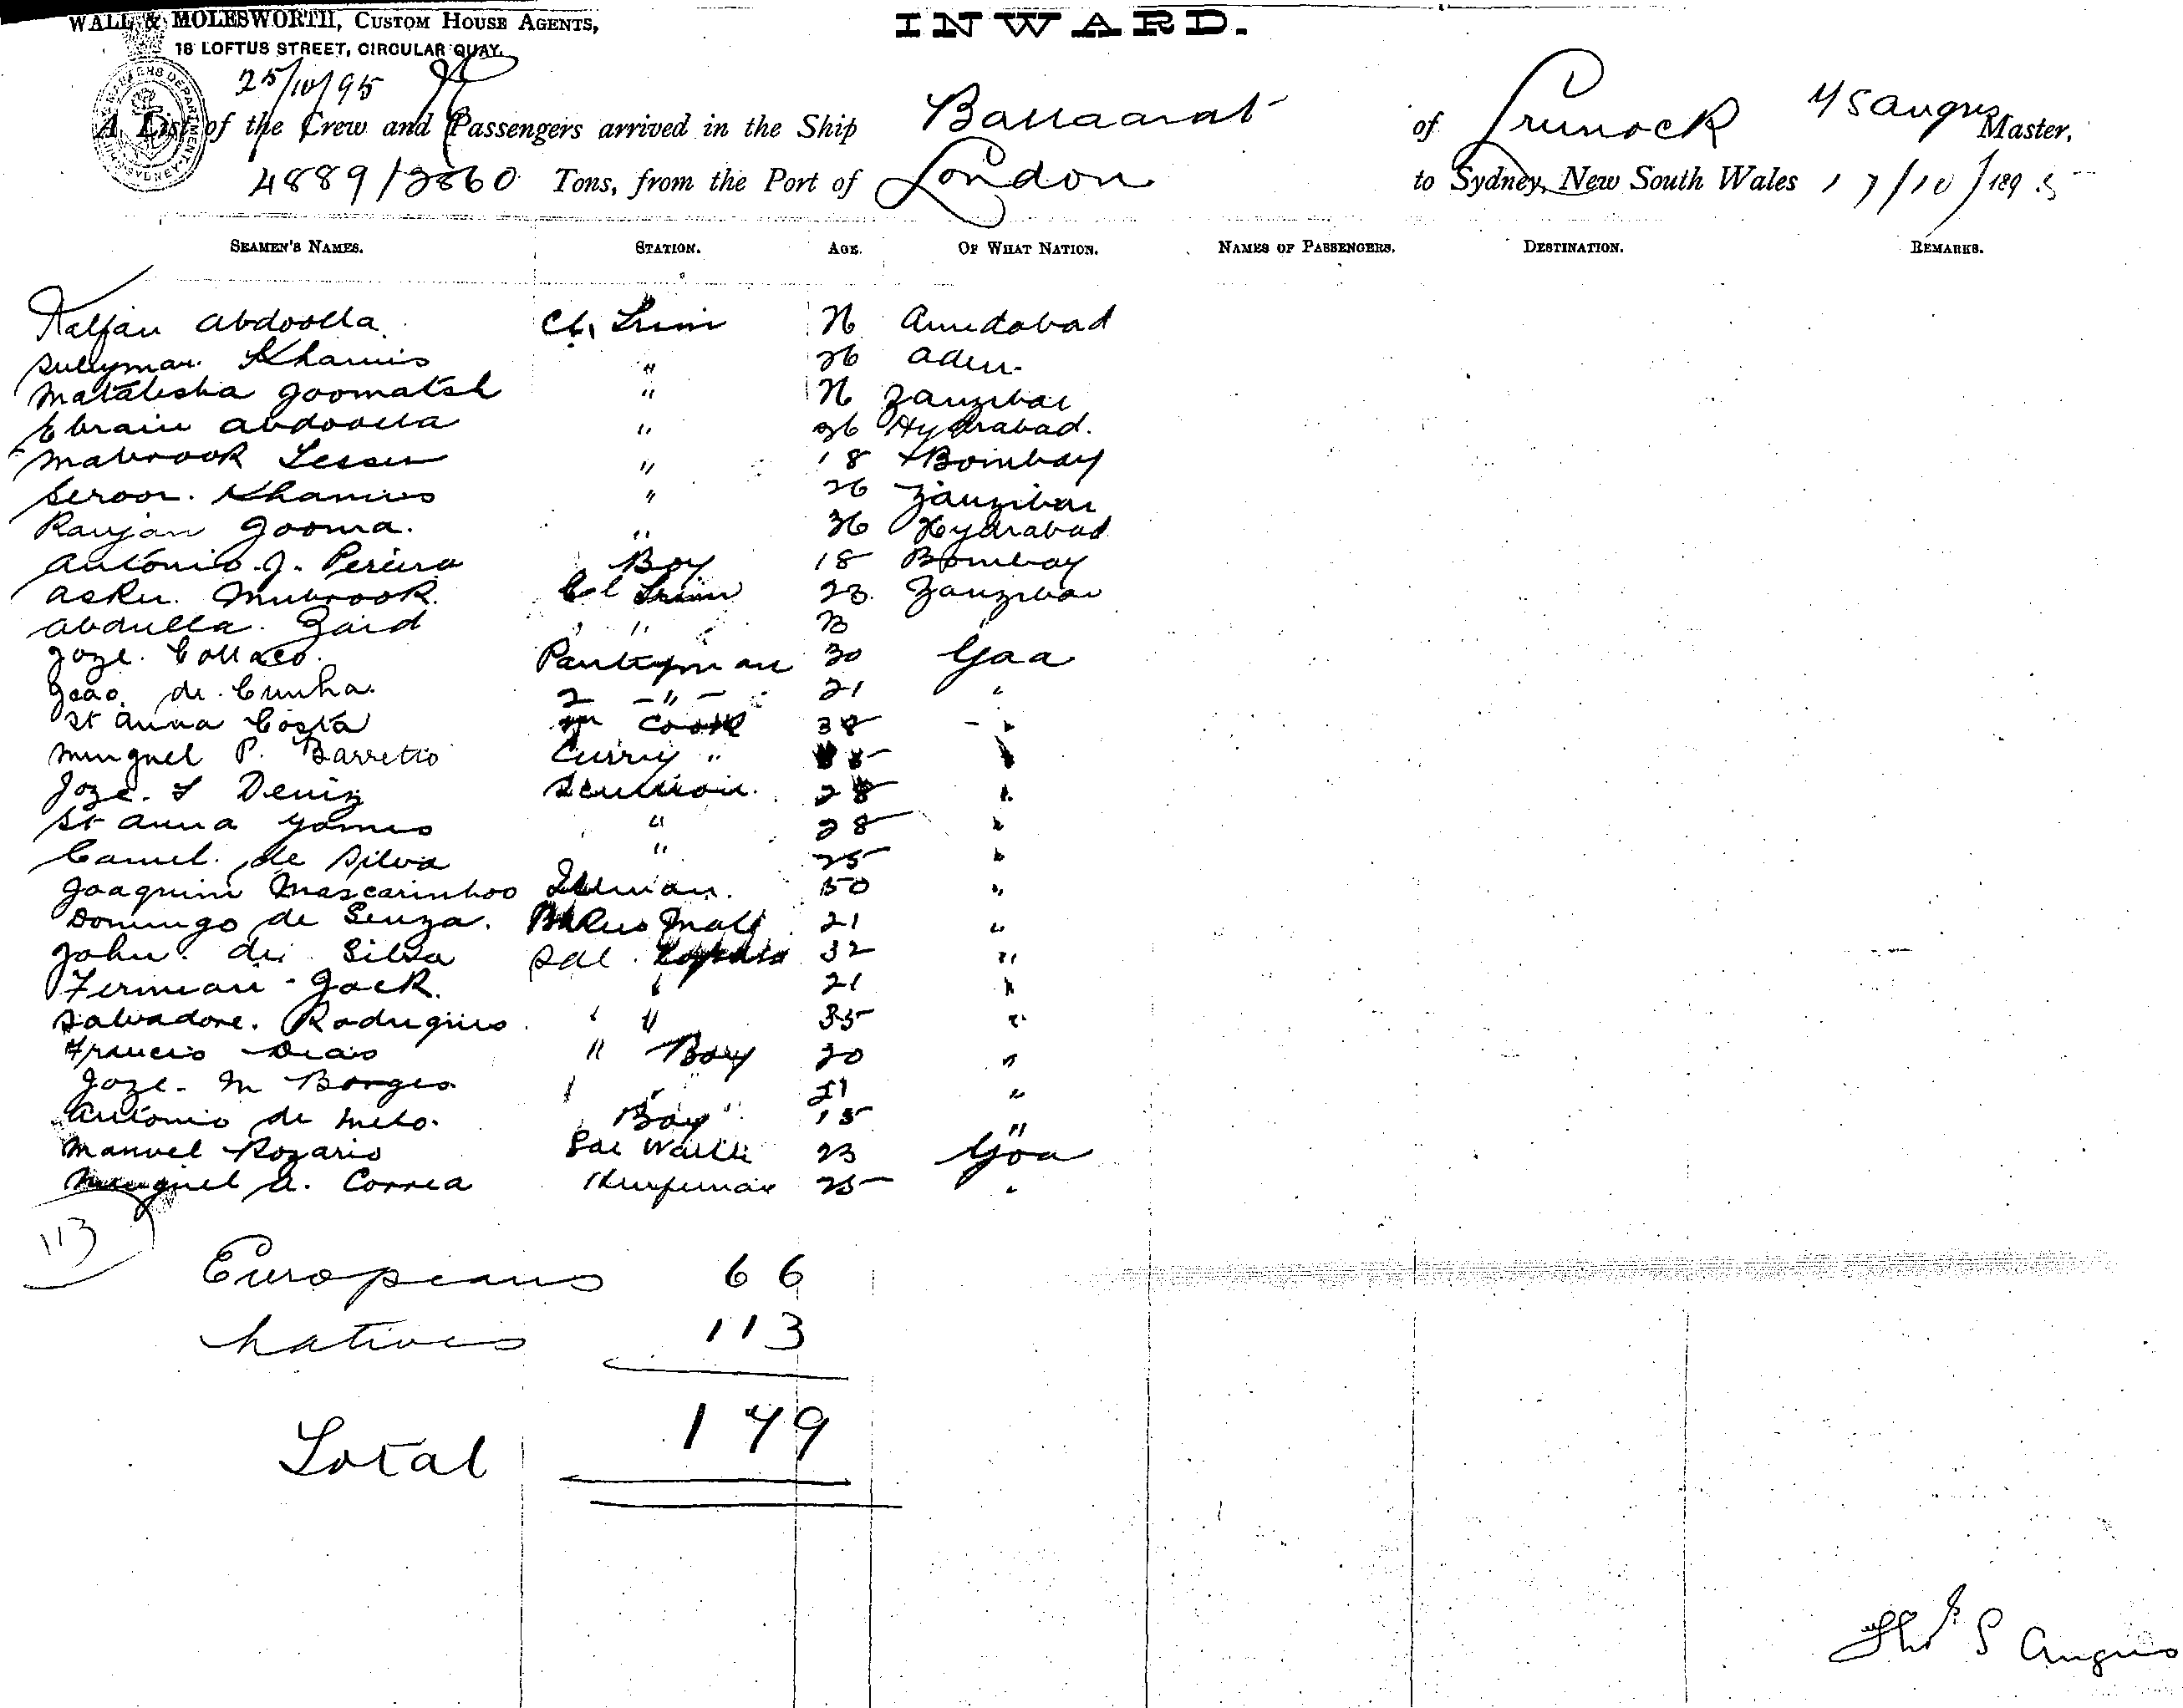 WALL & MOLESWORTH, CUSTOM HOUSE AGENTS,
18 LOFTUS STREET, CIRCULAR QUAY.
INWARD.
25/10/95
A List of the Crew and Passengers arrived in the Ship Ballaarat of Grunock T S Angus Master,
4889/2860 Tons, from the Port of London to Sydney, New South Wales 17/10/1895
SEAMEN'S NAMES. STATION. AGE. OF WHAT NATION. NAMES OF PASSENGERS. DESTINATION. REMARKS.
Kalfan Abdoolla Cl. Trim 26 Amedabad
Sulleyman Khamis " 26 Aden.
Matalisha Joomatsh " 26 Zanzibar
Ebraim Abdoolla " 36 Hydrabad.
Mabrook " 18 Bombay
Seroor. Khamis " 26 Zanzibar
Ranjan Jooma. " 36 Hydrabad
Antonio. J. Pereira Boy 18 Bombay
Asker. Mubrook. Cl Trim 23 Zanzibar
Abdulla. Zaid " " 23
Joze. Collaco. Pantryman 30 Goa
Joao de Cunha. 2 - " - 21 "
St Anna Costa Cook 38 "
Minguel P. Barretto Curry " "
Joze. S Deniz Scullion. 28 "
St Anna Gomes " 28 "
Camil. de Silva " 25 "
Joaquim Mascarinhos 50 "
Domingo de Souza. Bakers Mate 21 "
John. de Silva Sal. 32 "
Fermian - Jack. " 21 "
Salvadore. Rodrigues " " 35 "
Francis Dias " Boy 20 "
Joze. M Borges " " 21 "
Antonio de Melo. Boy " 15 "
Manuel Rozario Sal Waiter 23 Goa
Minguel A. Correa 25 "
113
Europeans 66
Natives 113
Total 179
Thos S Angus